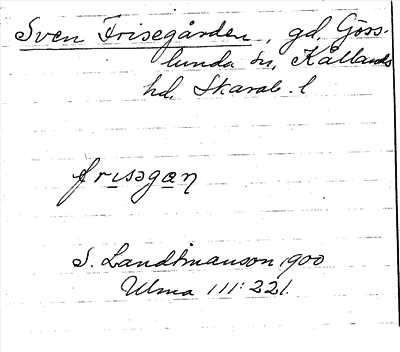 Sven Frisegården, gd, Göss-
lunda sn, Kållands
hd, Skarab. l
frisəgaɳ
S. Landtmanson 1900
Ulma 111:221.